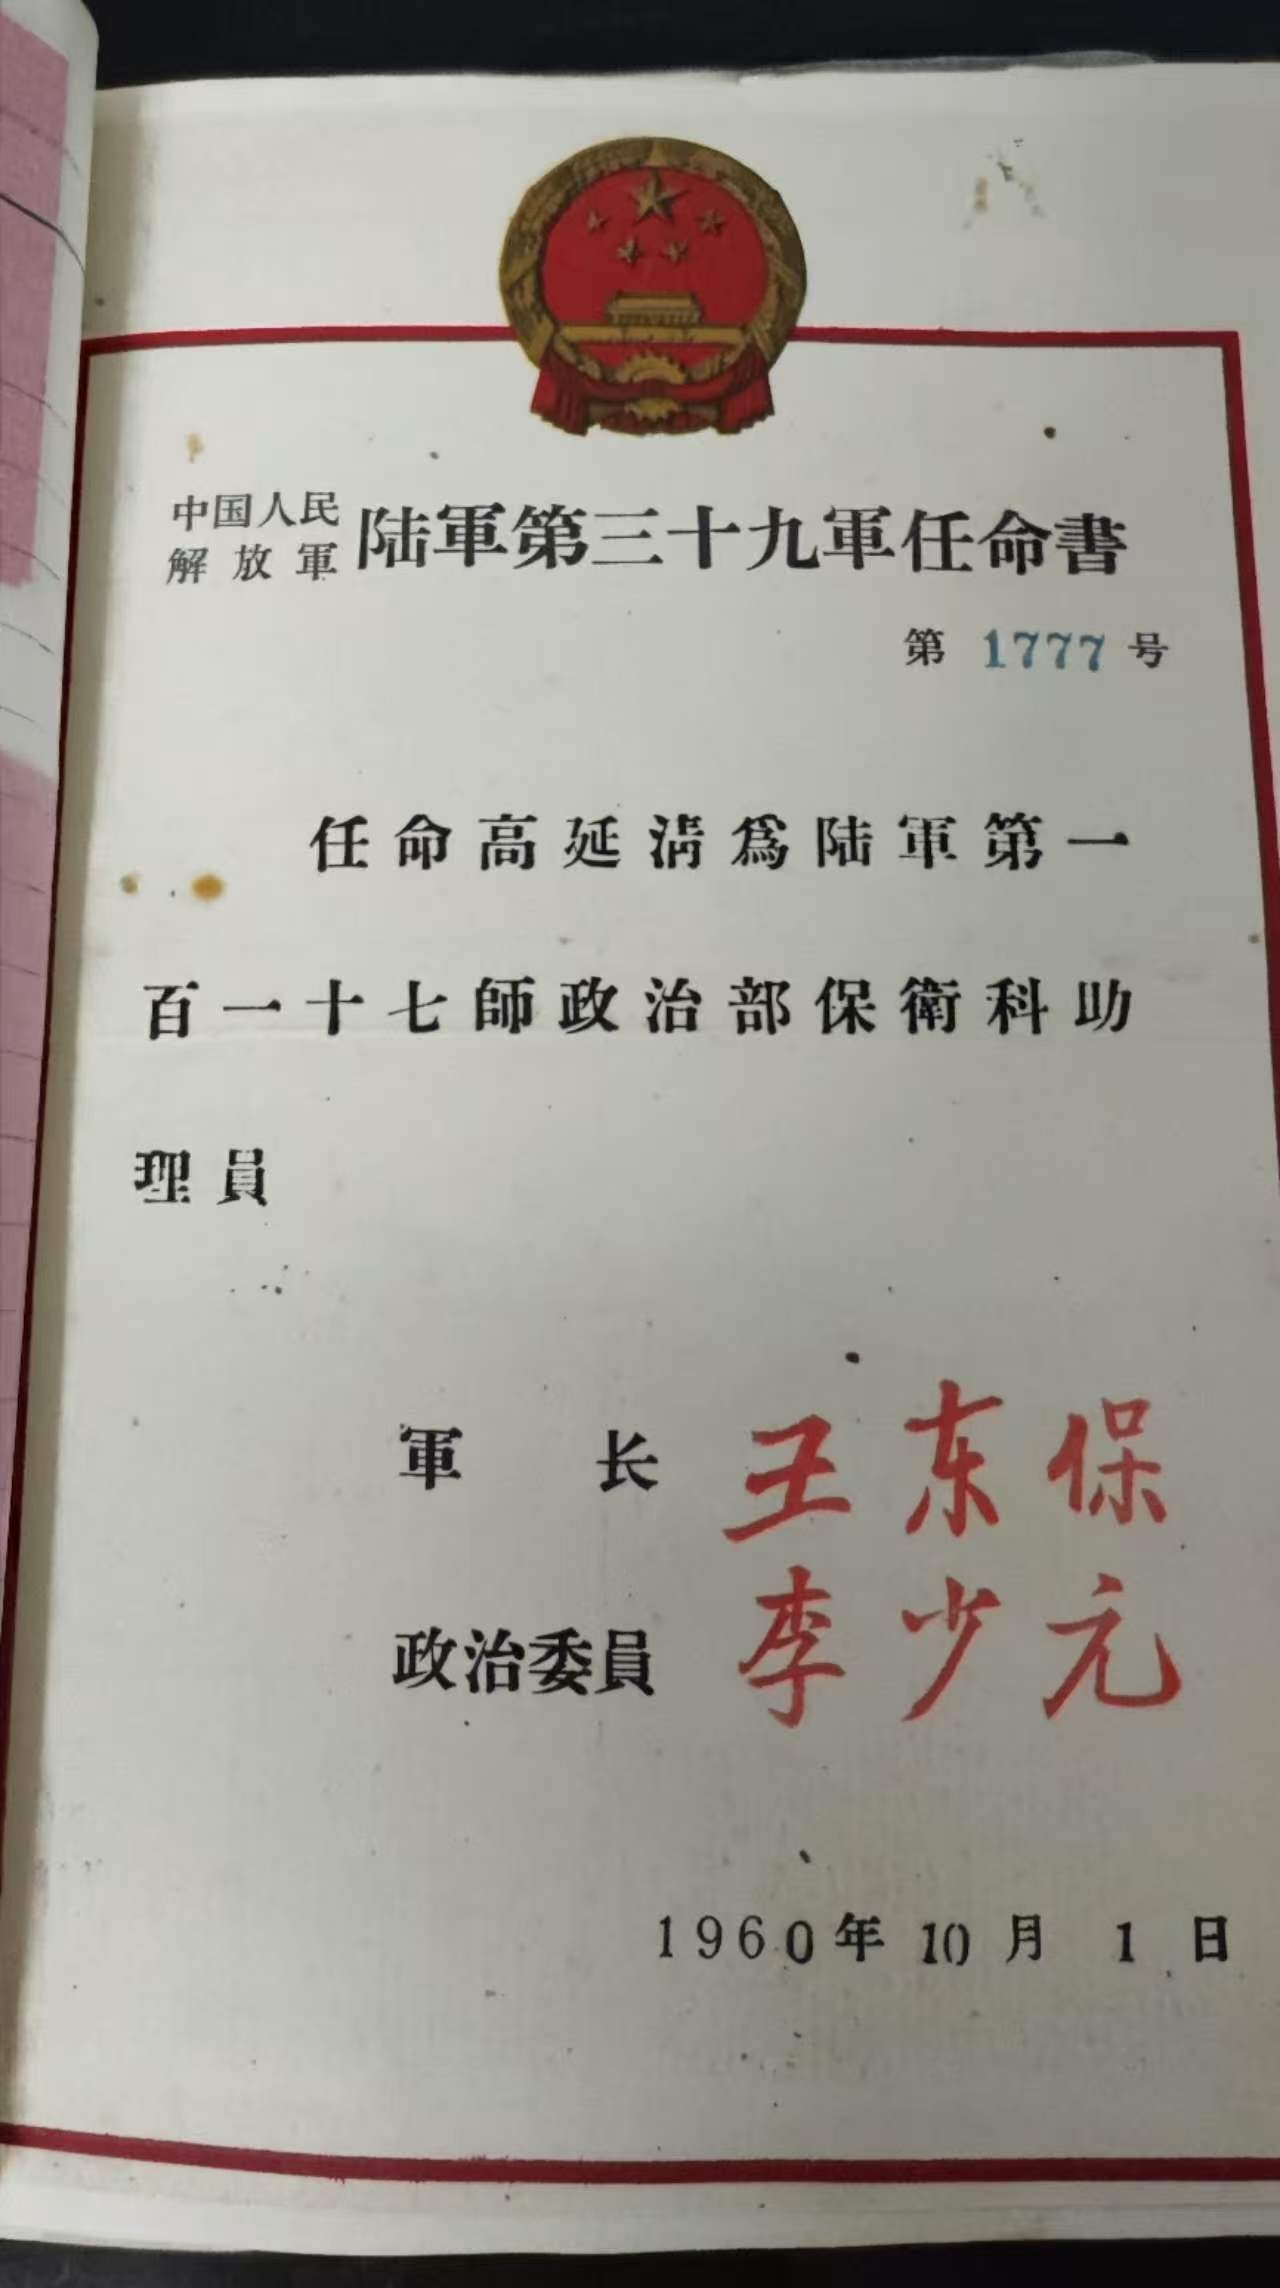 中国人民
解放軍
陆軍第三十九軍任命書
第 1777 号
任命高延淸爲陆軍第一
百一十七師政治部保衛科助
理員
軍 长 王东保
政治委員 李少元
1960年10月1日